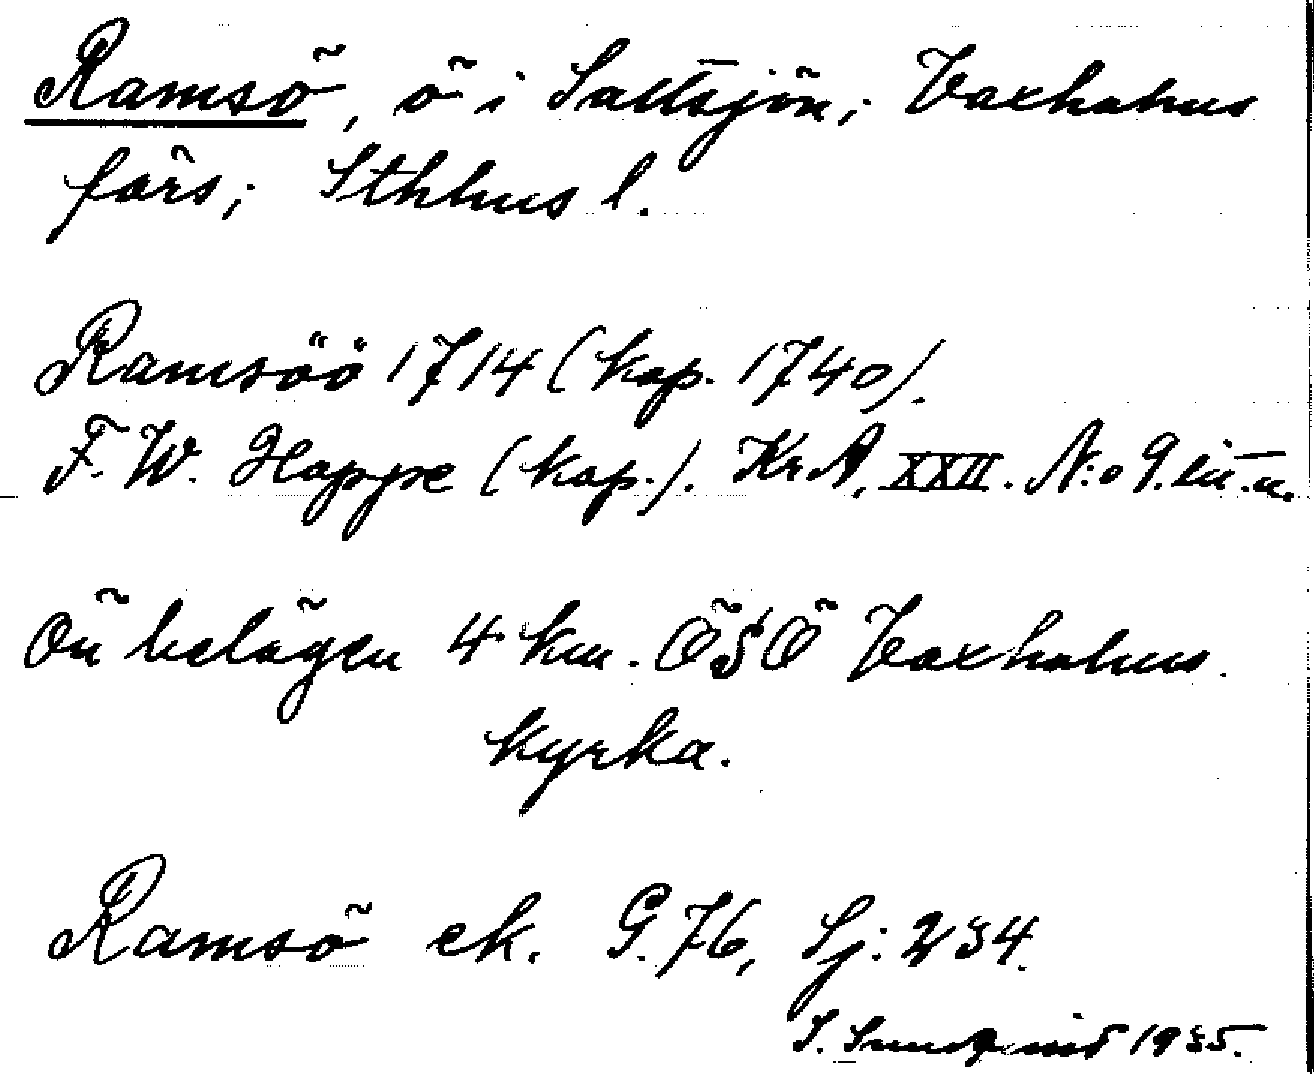 Ramsö, ö i Saltsjön; Vaxholms
förs; Sthlms l.
Ramsöö 1714 (kop. 1740).
F. W. Hoppe (kop.). KrA, XXII. N:o 9. lit. u.
Ön belägen 4 km. ÖSÖ Vaxholms
kyrka.
Ramsö ek. G. 76, Sj: 234.
S. Sundqvist 1935.